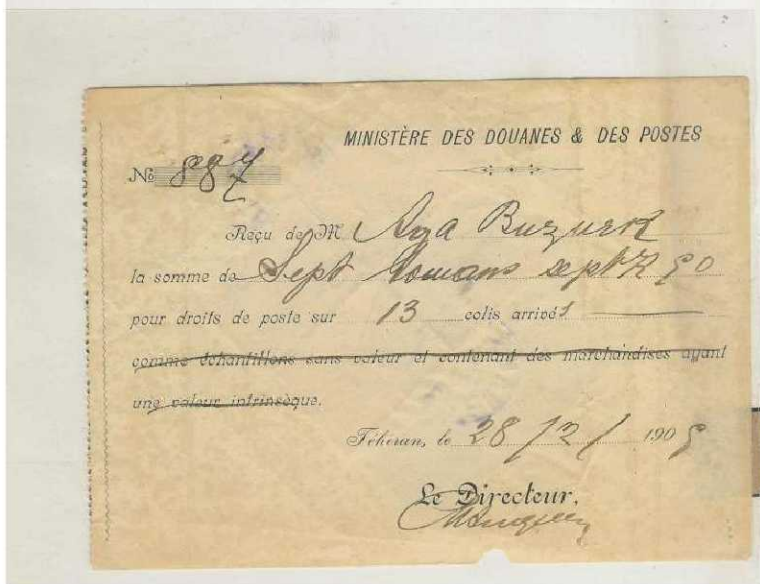 MINISTÈRE DES DOUANES & DES POSTES
No 887
Reçu de M Aga Buzurk
la somme de Sept tomans sept
pour droits de poste sur 13 colis arrivés
comme échantillons sans valeur et contenant des marchandises ayant
une valeur intrinsèque.
Téhéran, le 28/12/ 1905
Le Directeur,